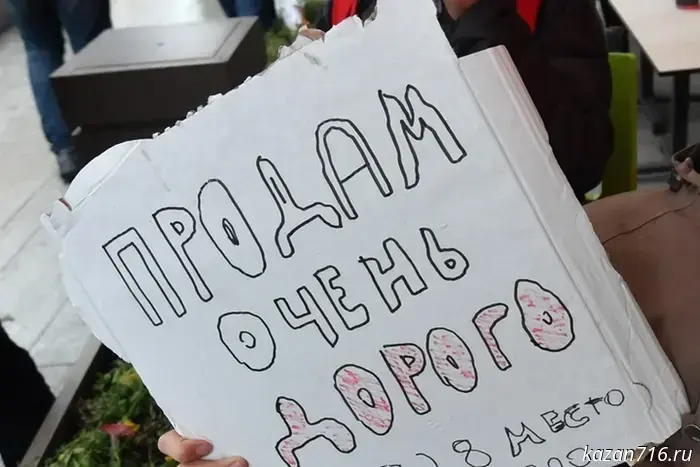 ПРОДАМ
ОЧЕНЬ
ДОРОГО
) 8 МЕСТО)
kazan716.ru